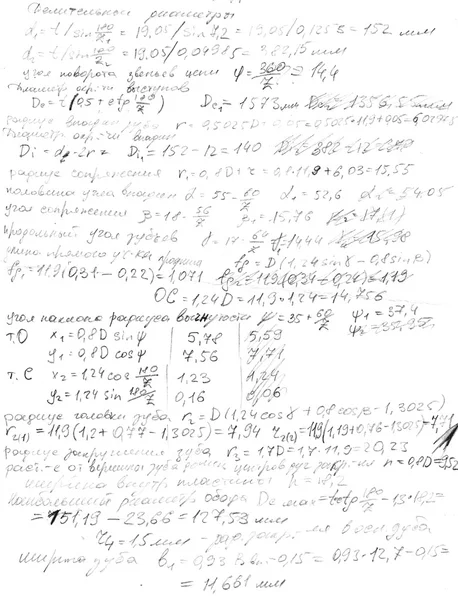 Делительные диаметры
d₁ = t / sin 180/z₁ = 19,05/sin 7,2 = 19,05/0,1253 = 152 мм
d₂ = t / sin 180/z₂ = 19.05/0,04985 = 382,15 мм
угол поворота звеньев цепи φ = 360/z = 14,4
Диаметр окр-ти выступов
De = t(0,5 + ctg 180/z) De₁ =
радиус впадин зуба r = 0,5025D + 0,05 = 0,5025·11,9+0,05 = 6,02975
Диаметр окр-ти впадин
Di = d₂ - 2r = Di₁ = 152 - 12 = 140
радиус сопряжения r₁ = 0,8D + r = 0,8·11,9 + 6,03 = 15,55
половина угла впадин α = 55 - 60/z α₁ = 52,6 α₂ = 54.05
угол сопряжения β = 18 - 56/z β₁ = 15,76
продольный угол зубьев γ = 17 - 64/z
длина прямого уч-ка профиля fg = D(1,24 sin γ - 0,8 sin β)
fg₁ = 11,9(0,31 - 0,22) = 1,071 fg₂ = 11,9(0,34 - 0,24) = 1,19
OC = 1,24D = 11,9·1,24 = 14,756
угол наклона радиуса вогнутости ψ = 35 + 60/z ψ₁ = 37,4
т.О x₁ = 0,8D sin ψ 5,78 5,59
y₁ = 0,8D cos ψ 7,56 7,71
т. С x₂ = 1,24 cos 180/z 1,23 1,24
y₂ = 1,24 sin 180/z 0,16
радиус головки зуба r₂ = D(1,24 cos γ + 0,8 cos β - 1,3025)
r₂₍₁₎ = 11,9(1,2 + 0,77 - 1,3025) = 7,94 r₂₍₂₎ = 11,9(1,19 + 0,76 - 1,3025) = 7,71
радиус закругления зуба r₃ = 1,7D = 1,7·11,9 = 20,23
расст-е от вершины зуба до линии центров дуг закр-ия h = 0,8D = 9,52
ширина внутр. пластины h = 18,2
Наибольший диаметр обода Dc max = t ctg 180/z - 1,3·18,2 =
= 151,19 - 23,66 = 127,53 мм
r₄ = 1,5 мм - рад. закр-ия у осн. зуба
ширина зуба b₁ = 0,93 Bвн - 0,15 = 0,93·12,7 - 0,15 =
= 11,661 мм